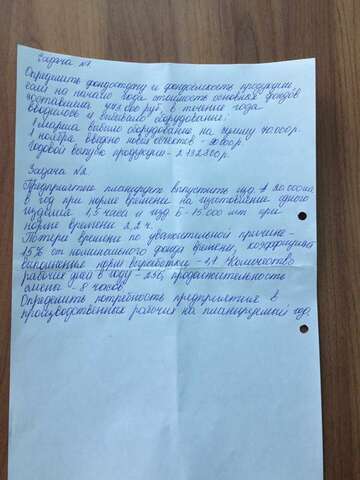 Задача №1
Определить фондоотдачу и фондоемкость продукции
если на начало года стоимость основных фондов
составила руб, в течение года
вводилось и выбывало оборудование:
1 марта выбыло оборудование на сумму 40000р.
1 ноября, введено новых объектов - р.
Годовой выпуск продукции - р.
Задача №2.
Предприятие планирует выпустить изд. А 20.000 шт
в год при норме времени на изготовление одного
изделия 1,5 часа и изд Б - 15.000 шт при
норме времени 2,2 ч.
Потери времени по уважительной причине -
15% от номинального фонда времени, коэффициент
выполнения норм выработки - 1,1. Количество
рабочих дней в году - 256, продолжительность
смены - 8 часов.
Определить потребность предприятия в
производственных рабочих на планируемый год.